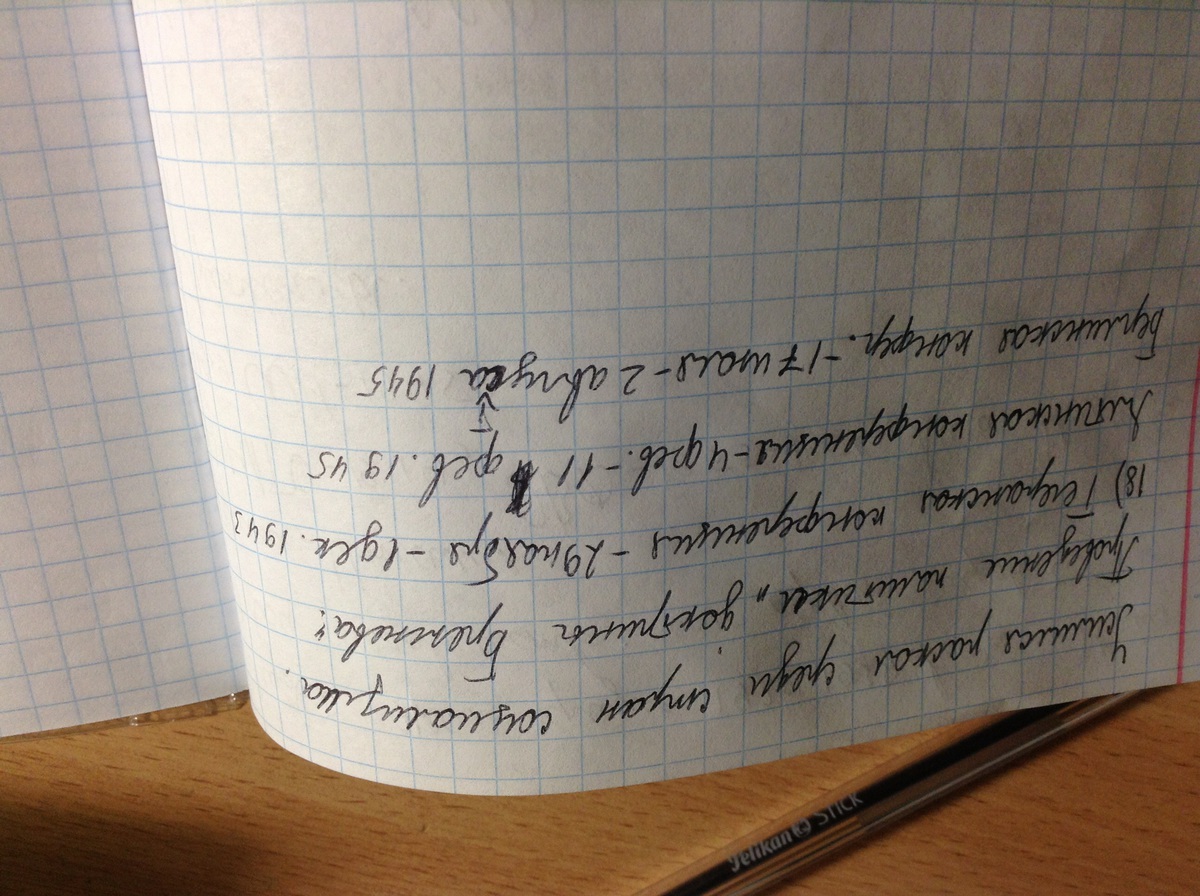 Усилился раскол среди стран социализма.
Проведение политики „доктрины Брежнева“
18) Тегеранская конференция - 29 ноября - 1 дек. 1943
Ялтинская конференция - 4 фев. - 11 фев. 1945
Берлинская конфер. - 17 июля - 2 авгуса 1945
т
Pelikan STICK